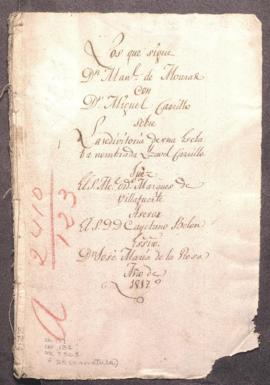 Los que sigue
Dn. Manl. de Mouras
con
Dn. Miguel Carrillo
sobre
La redivitoria de una Escla
ba nombrada Carrillo
Juez
El S. Marques de
Villafuerte
Asesor
El S. D. D. Cayetano Belon
Essno.
Dn. José Maria de la Rosa
Año de
1817
2410
123